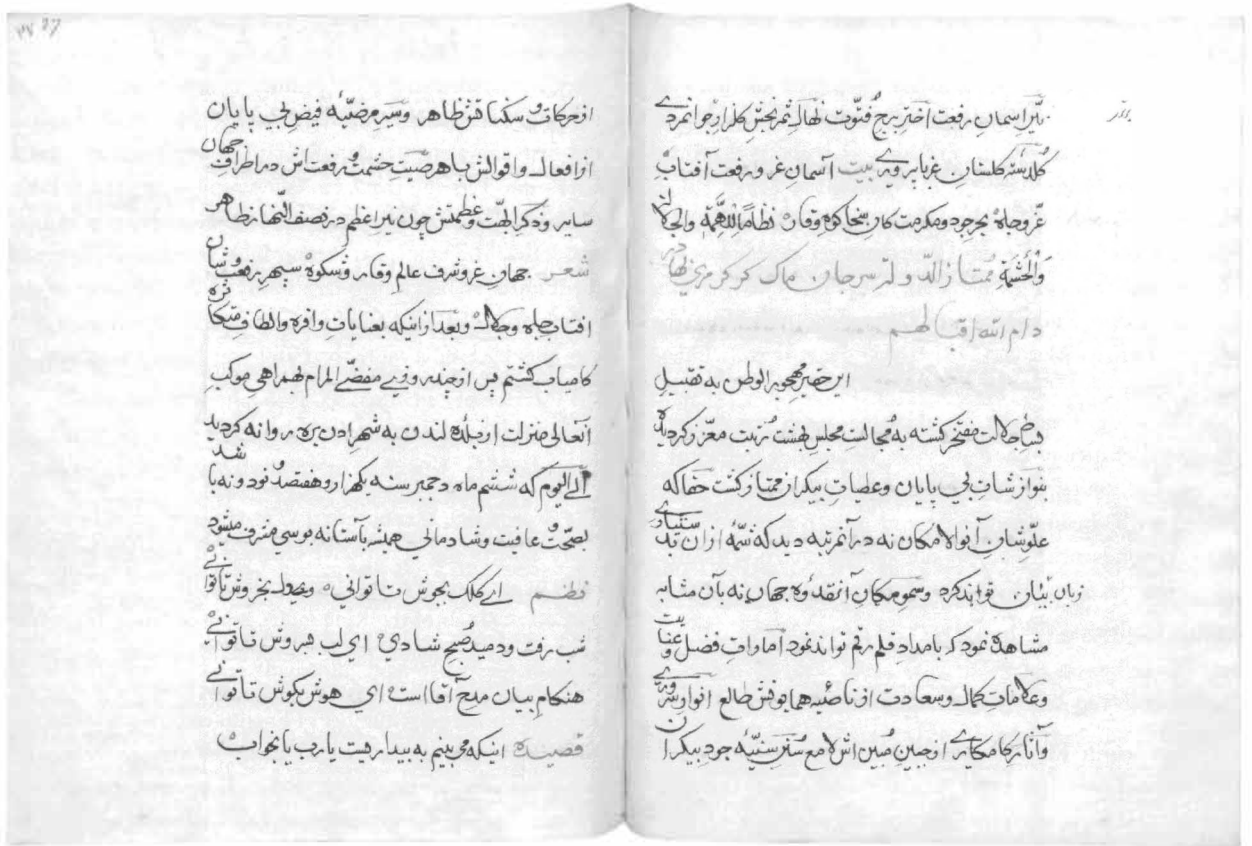 نیّر اسمان رفعت اختر برج فُتوّت نهال ثمر بخش کلزار جوانمردی
کلدسته کلستان غریب پروری بیت اسمان عز و رفعت آفتاب
عزّ و جاه بحر جود و مکرمت کان سخا کوه وقار نظاماً للهمّة والجلال
والحشمة ممتاز الدّوله سر جان ماک کرکر مری بهادر
دام الله اقبالهم
این حقیر مهجور الوطن به تقبیل
بساط جلالت مفتخر کشته به مجالست مجلس بهشت تزئیت معزّز کردیده
بنوازشات بی پایان و عطیات بیکران ممتاز کشت حقّا که
علوّشان آنوالا مکان نه در آنمرتبه دیده که شمّهٔ از ان بدستیاری
زبان بیان تواند کرد و سموّ مکان آنقدوهٔ جهان نه بآن مثابه
مشاهده نمود که بامداد قلم رقم تواند نمود امارات فضل و عنایت
و علامات کمال و سعادت از ناصیه همایونش طالع انوار سروری
و آثار کامکاری از جبین مُبین اش لامع سُنن سَنیّهٔ جود بیکران
27
از حرکات و سکناتش ظاهر و سیر مرضیّهٔ فیض بی پایان
از افعال و اقوالش باهر صیت حشمت و رفعت اش در اطراف جهان
سایر و ذکر ابهّت و عظمتش چون نیر اعظم در نصف النهار ظاهر
شعر جهان عز و شرف عالم وقار و شکوه سپهر رفعت و شان
افتاب جاه و جلال و بعد از اینکه بعنایات وافره و الطاف متکاثره
کامیاب کشتم پس از چند روزی مقضّی المرام بهمراهی موکب
آنعالی منزلت از بلدهٔ لندن به شهر ادن بره روانه کردید
الی الیوم که ششم ماه دجمبر سنه یکهزار و هفتصد و نود و نه باشد
بصحّت و عافیت و شادمانی همیشه بآستانه بوسی مشرف میشود
نظم ای کلک بجوش تا توانی ویدل بخروش تا توانی
شب رفت و دمید صبح شادی ای لب هروش تا توانی
هنکام بیان مدح آقا است ای هوش بکوش تا توانی
قصیده اینکه می بینم به بیداریست یارب یا بخواب